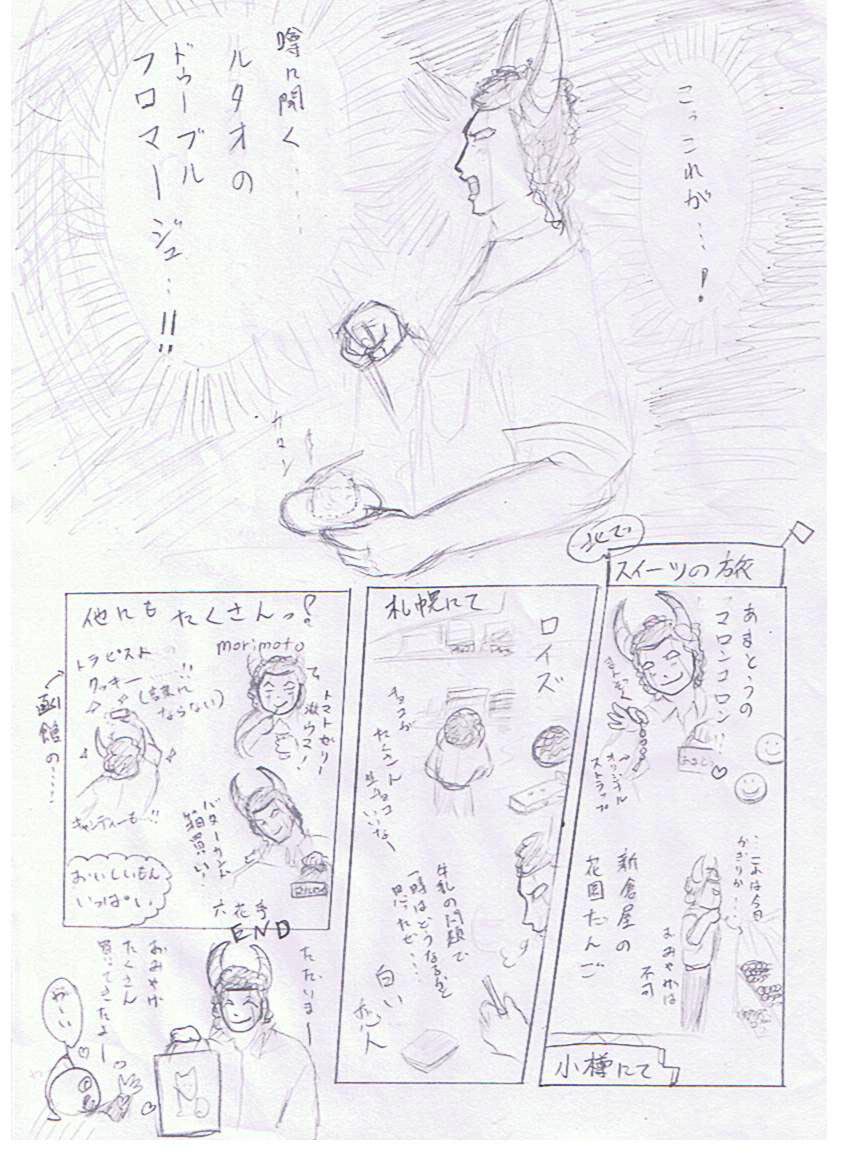 こっこれが…!
噂に聞く……
ルタオの
ドゥーブル
フロマージュ…!!
カタン
北で
スイーツの旅
あまとうの
マロンコロン!!
オリジナル
ストラップ
新倉屋の
花園だんご
…これは今日
かぎりか…
おみやげは
不可
小樽にて
札幌にて
ロイズ
チョコが
たくさん
生チョコ
いいなー
牛乳の問題で
一時はどうなるかと
思ったぜ…
白い
恋人
他にもたくさんっ!
morimoto
トマトゼリー
激ウマ!
トラピストの
クッキー……!!
(言葉に
ならない)
函館の…
キャンディーも…!!
バターカステラ
箱買い!
六花亭
おいしいもん
いっぱい
END
ただいまー
おみやげ
たくさん
買ってきたよー
わーい